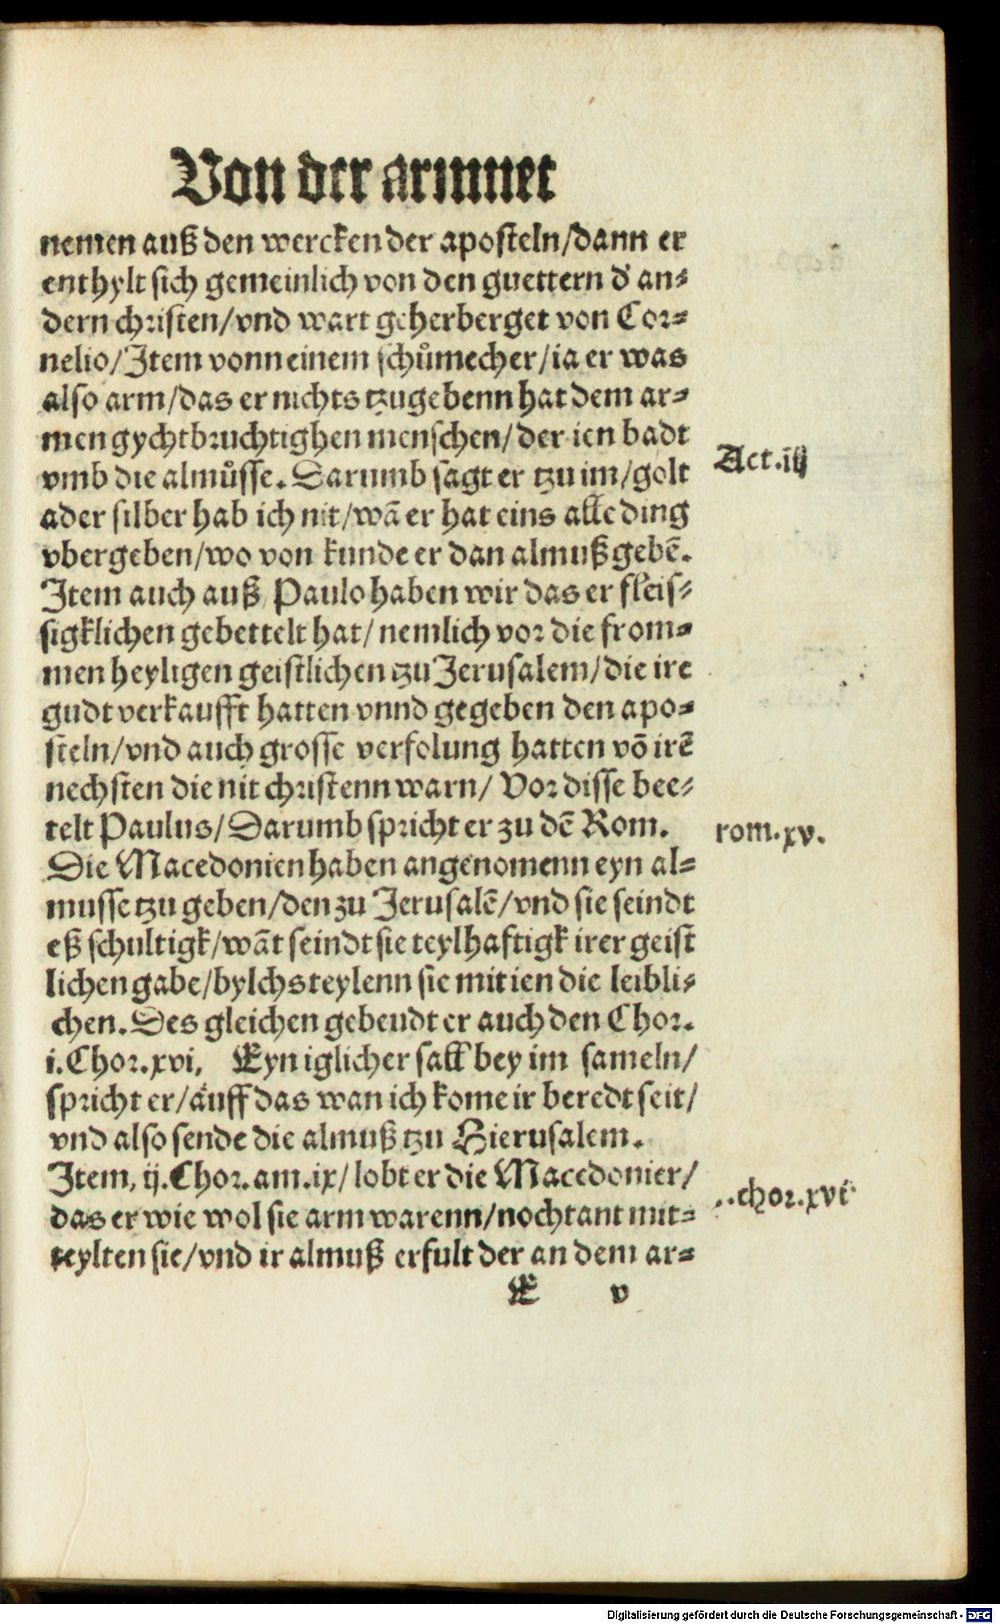 Von der armuet
nemen auß den wercken der aposteln/dann er
enthylt sich gemeinlich von den guettern d' an⸗
dern christen/vnd wart geherberget von Cor⸗
nelio/Item vonn einem schůmecher/ia er was
also arm/das er nichts tzugebenn hat dem ar⸗
men gychtbruchtighen menschen/der ien badt
vmb die almůsse. Darumb sagt er tzu im/golt
Act.iij
ader silber hab ich nit/wã er hat eins alle ding
vbergeben/wo von kunde er dan almuß gebẽ.
Item auch auß Paulo haben wir das er fleis⸗
sigklichen gebettelt hat/nemlich vor die from⸗
men heyligen geistlichen tzu Jerusalem/die ire
gudt verkaufft hatten vnnd gegeben den apo⸗
steln/vnd auch grosse verfolung hatten võ irẽ
nechsten die nit christenn warn/Vor disse bee⸗
telt Paulus/Darumb spricht er zu dẽ Rom.
rom.xv.
Die Macedonien haben angenomenn eyn al⸗
musse tzu geben/den zu Jerusalẽ/vnd sie seindt
eß schultigk/wãt seindt sie teylhaftigk irer geist
lichen gabe/bylchs teylenn sie mit ien die leibli⸗
chen. Des gleichen gebeudt er auch den Chor.
i.Chor.xvi. Eyn iglicher sall bey im sameln/
spricht er/auff das wan ich kome ir beredt seit/
vnd also sende die almuß tzu Hierusalem.
Item, ij.Chor.am.ix/lobt er die Macedonier/
..chor.xvi
das er wie wol sie arm warenn/nochtant mit⸗
teylten sie/vnd ir almuß erfult der an dem ar⸗
E v
Digitalisierung gefördert durch die Deutsche Forschungsgemeinschaft - DFG